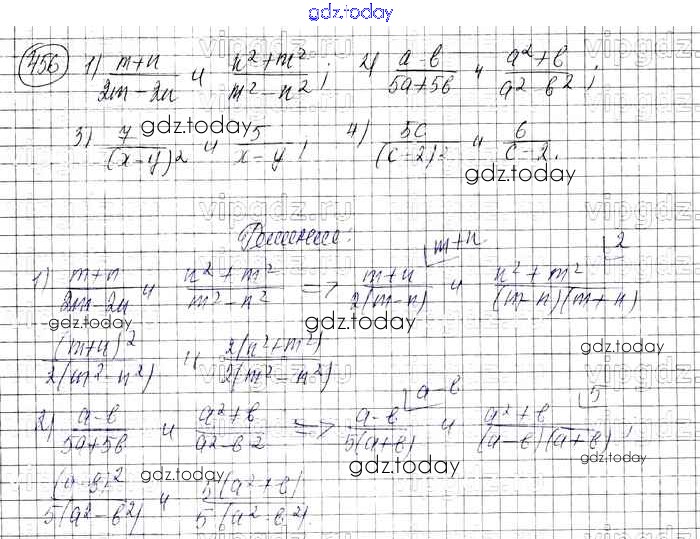 gdz.today
456 1) (m+n)/(2m-2n) и (n²+m²)/(m²-n²); 2) (a-b)/(5a+5b) и (a²+b)/(a²-b²);
3) 7/(x-y)² и 5/(x-y); 4) 5c/(c-2)² и 6/(c-2).
gdz.today
gdz.today
vipgdz.ru
Решение:
1) (m+n)/(2m-2n) и (n²+m²)/(m²-n²) => (m+n)/(2(m-n)) m+n и (n²+m²)/((m-n)(m+n)) 2
gdz.today gdz.today
(m+n)²/(2(m²-n²)) и 2(n²+m²)/(2(m²-n²))
gdz.today
2) (a-b)/(5a+5b) и (a²+b)/(a²-b²) => (a-b)/(5(a+b)) a-b и (a²+b)/((a-b)(a+b)) 5;
gdz.today gdz.today gdz.today
(a-b)²/(5(a²-b²)) и 5(a²+b)/(5(a²-b²)).